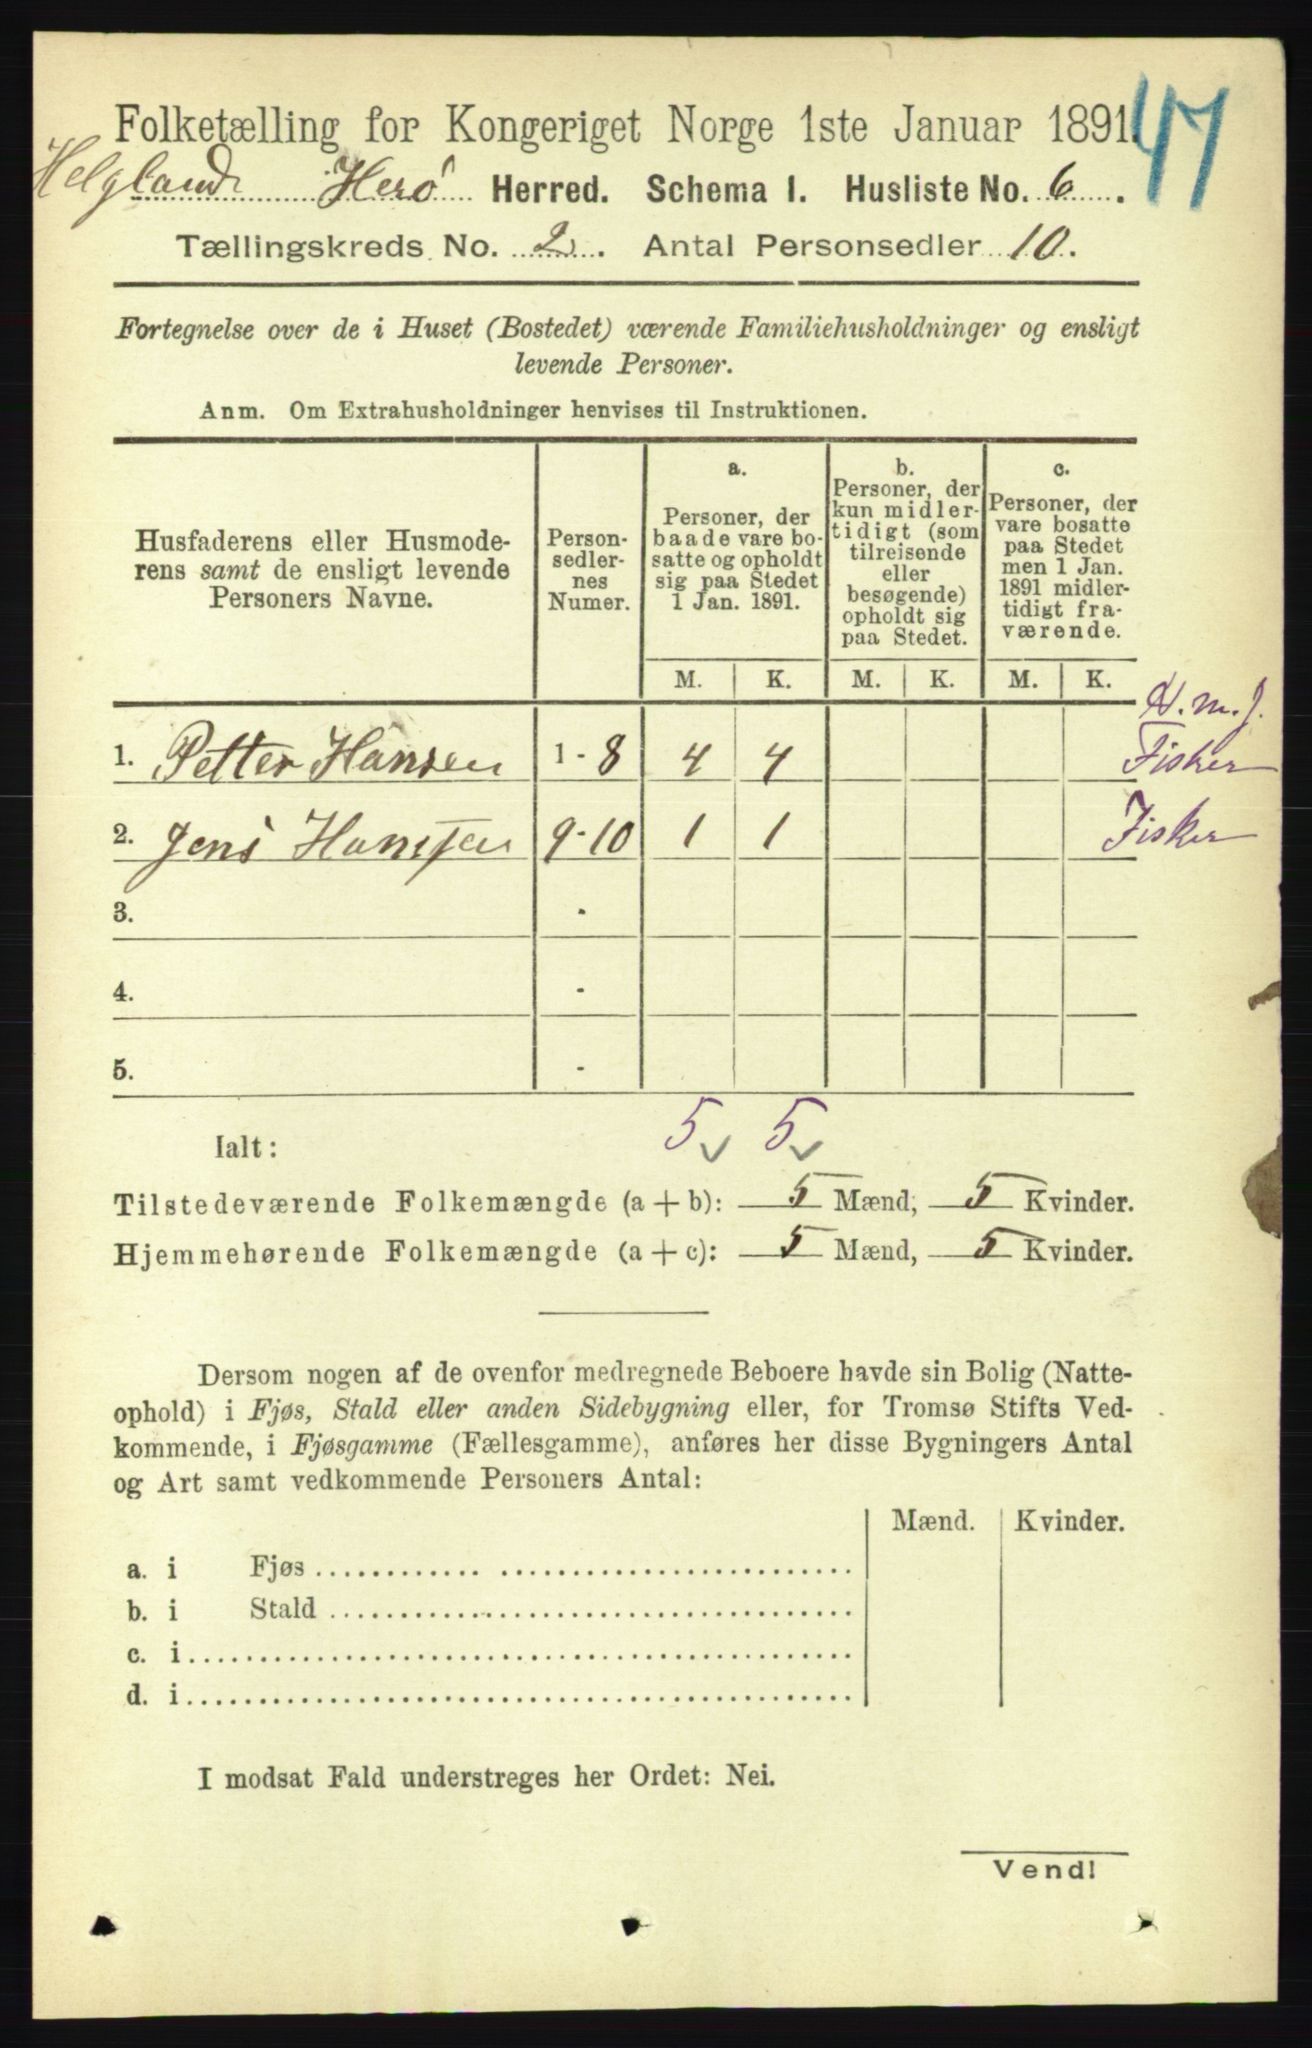 47
Folketælling for Kongeriget Norge 1ste Januar 1891.
Helgland Herö Herred. Schema I. Husliste No. 6.
Tællingskreds No. 2. Antal Personsedler 10.
Fortegnelse over de i Huset (Bostedet) værende Familiehusholdninger og ensligt
levende Personer.
Anm. Om Extrahusholdninger henvises til Instruktionen.
Husfaderens eller Husmode-
rens samt de ensligt levende
Personers Navne.
Person-
sedler-
nes
Numer.
a.
Personer, der
baade vare bo-
satte og opholdt
sig paa Stedet
1 Jan. 1891.
b.
Personer, der
kun midler-
tidigt (som
tilreisende
eller
besøgende)
opholdt sig
paa Stedet.
c.
Personer, der
vare bosatte
paa Stedet
men 1 Jan.
1891 midler-
tidigt fra-
værende.
M. K. M. K. M. K.
H. m. J.
1. Petter Hansen 1 - 8 4 4 Fisker
2. Jens Hansen 9 - 10 1 1 Fisker
3. -
4. -
5. -
5 5
Ialt:
Tilstedeværende Folkemængde (a + b): 5 Mænd, 5 Kvinder.
Hjemmehørende Folkemængde (a + c): 5 Mænd, 5 Kvinder.
Dersom nogen af de ovenfor medregnede Beboere havde sin Bolig (Natte-
ophold) i Fjøs, Stald eller anden Sidebygning eller, for Tromsø Stifts Ved-
kommende, i Fjøsgamme (Fællesgamme), anføres her disse Bygningers Antal
og Art samt vedkommende Personers Antal:
Mænd. Kvinder.
a. i Fjøs
b. i Stald
c. i
d. i
I modsat Fald understreges her Ordet: Nei.
Vend!